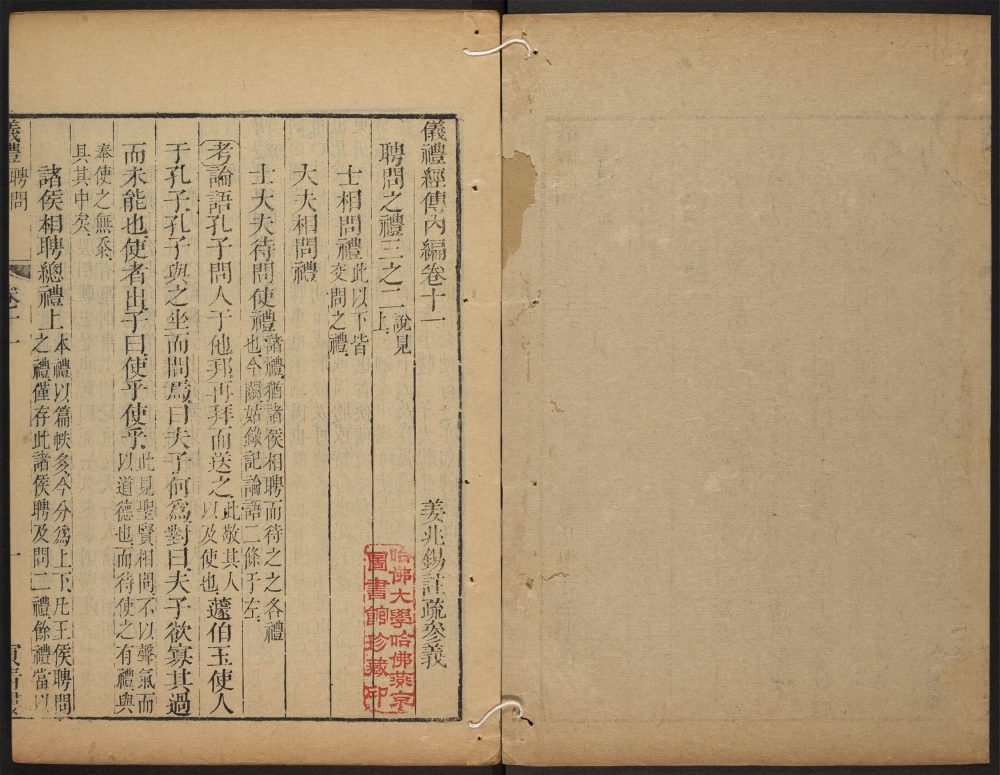 儀禮經傳內編卷十一
姜兆錫註疏參義
聘問之禮三之二說見上
士相問禮此以下皆交問之禮
大夫相問禮
士大夫待問使禮諸禮猶諸侯相聘而待之之各禮也今闕姑錄記論語二條于左
考論語孔子問人于他邦再拜而送之此敬其人以及使也蘧伯玉使人
于孔子孔子與之坐而問焉曰夫子何為對曰夫子欲寡其過
而未能也使者出子曰使乎使乎此見聖賢相問不以聲氣而以道德也而待使之有禮與
奉使之無忝具其中矣
諸侯相聘總禮上本禮以篇帙多今分為上下凡王侯聘問之禮僅存此諸侯聘及問二禮餘禮當以
儀禮 聘問
卷十一
一
哈佛大學哈佛燕京
圖書館珍藏印